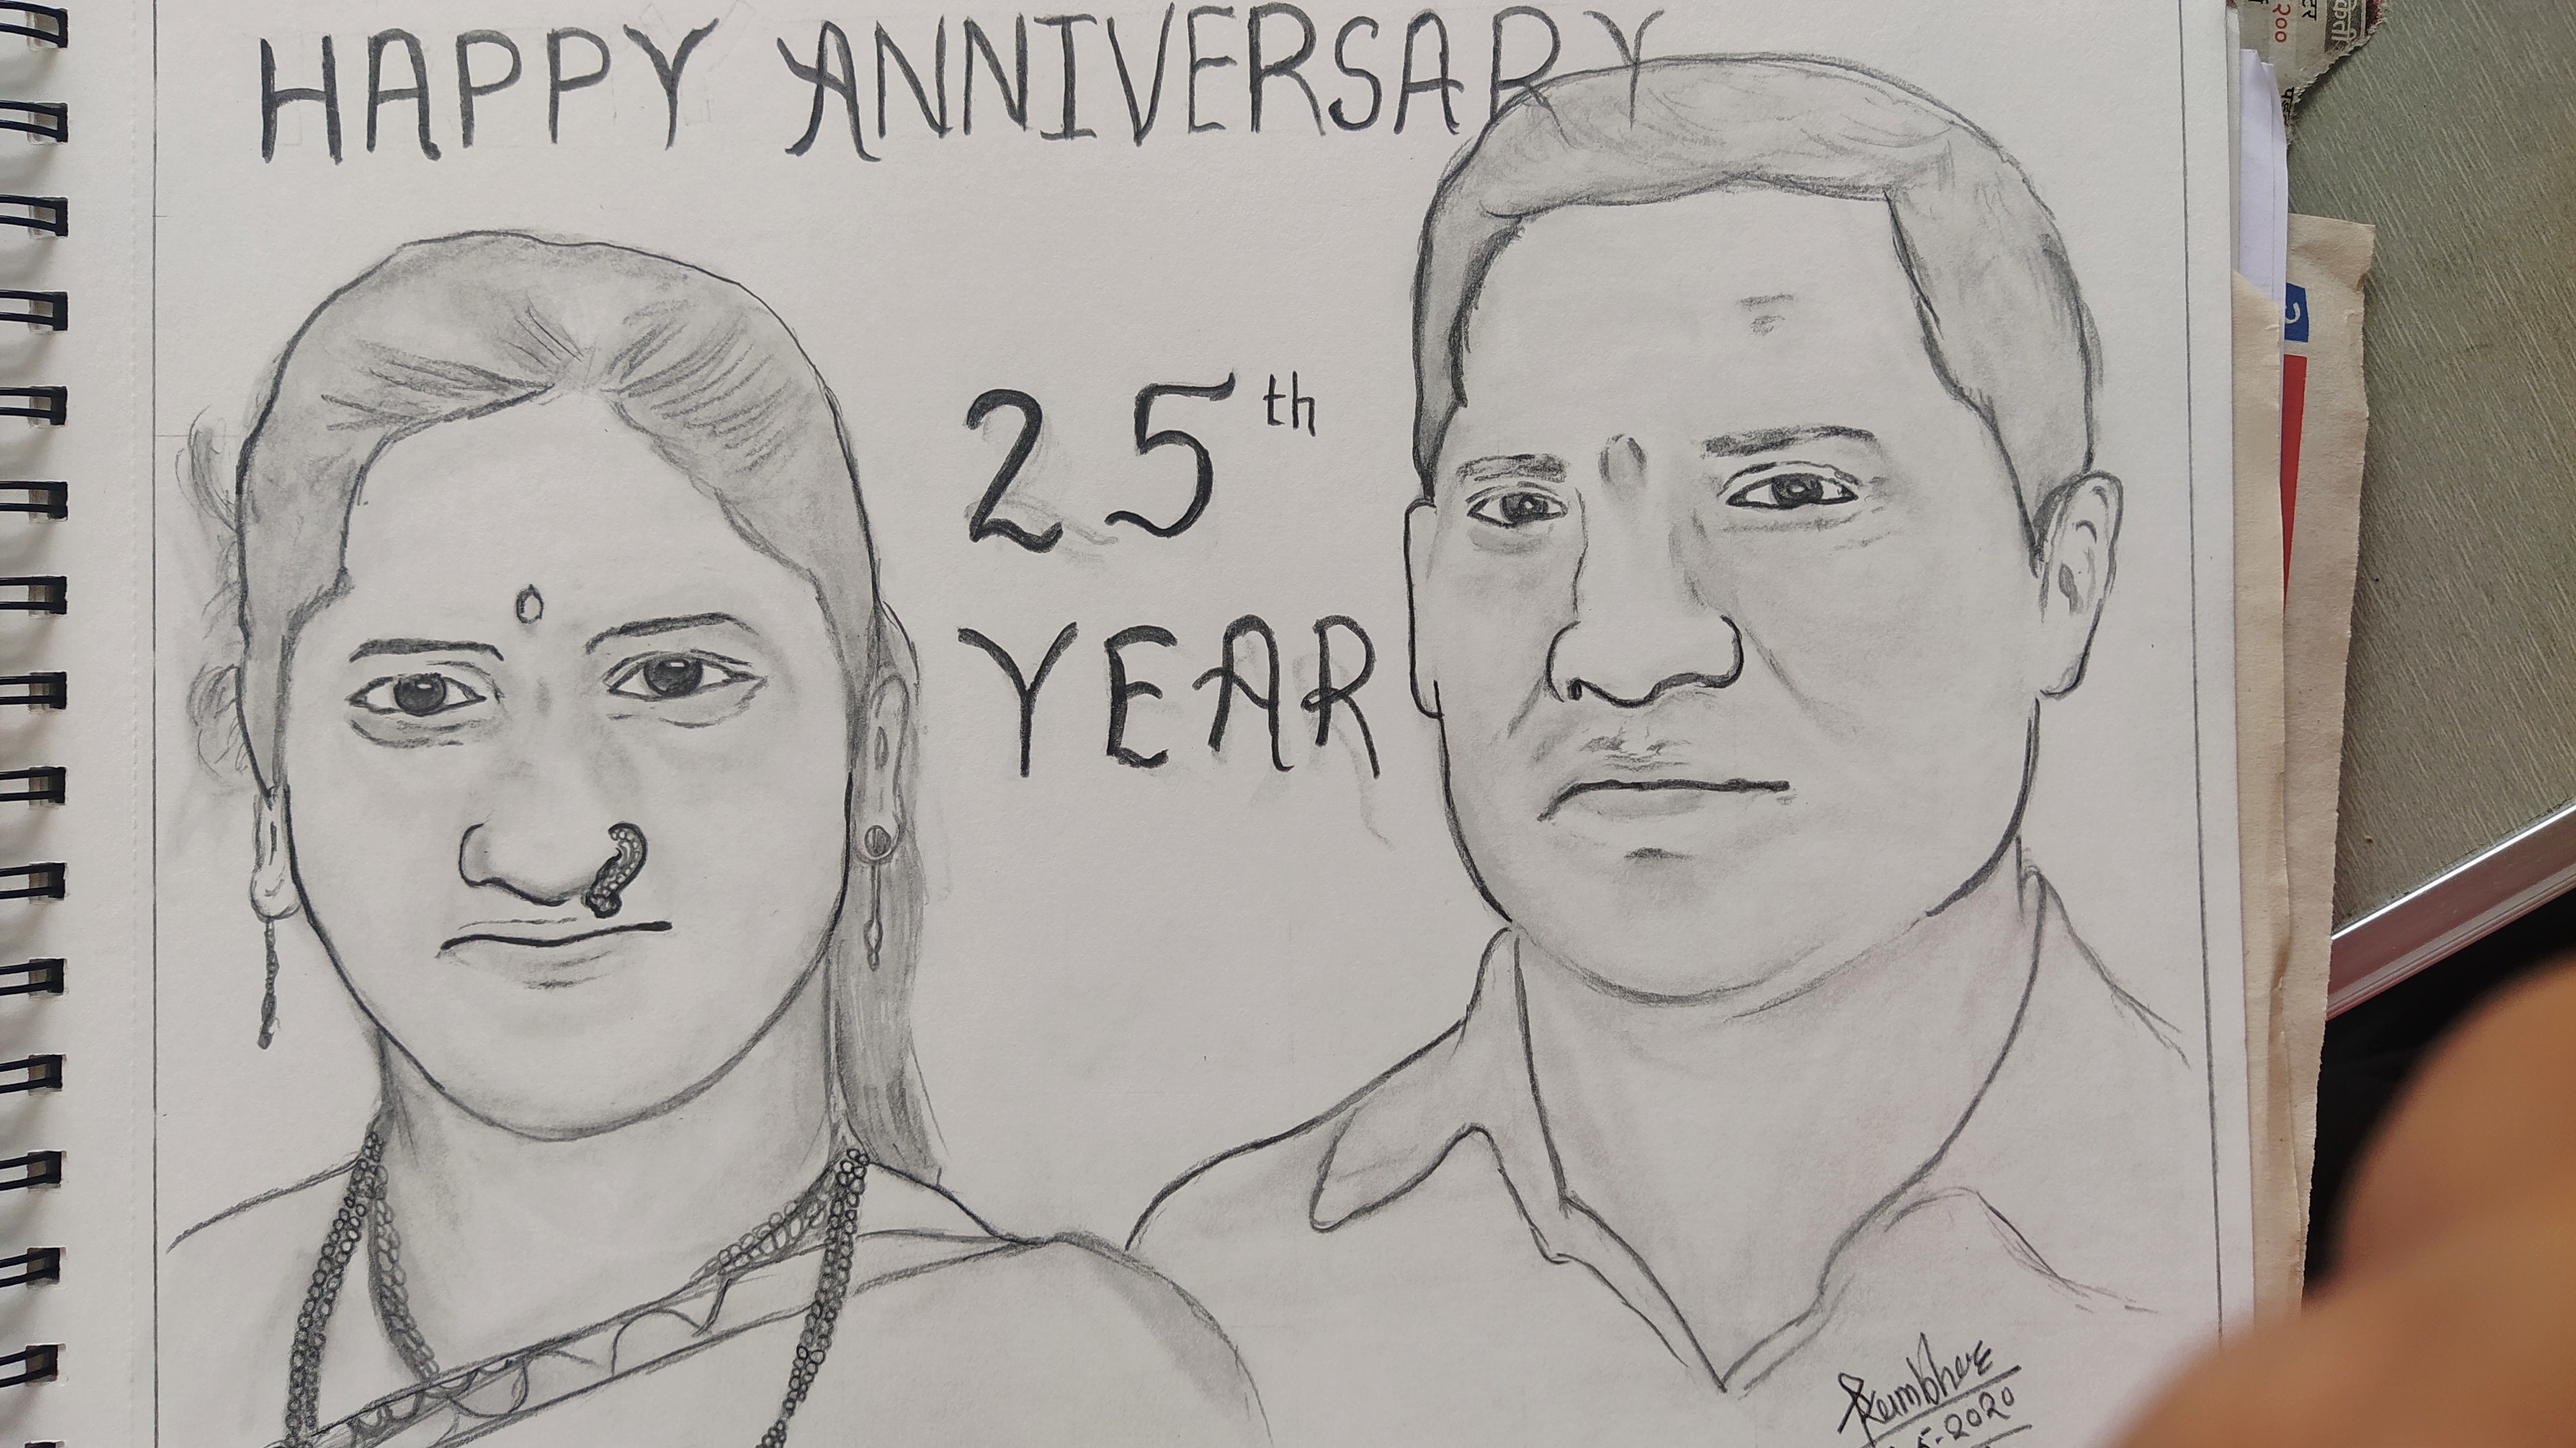 HAPPY ANNIVERSARY
25th
YEAR
Kumbhar
5-2020
२००